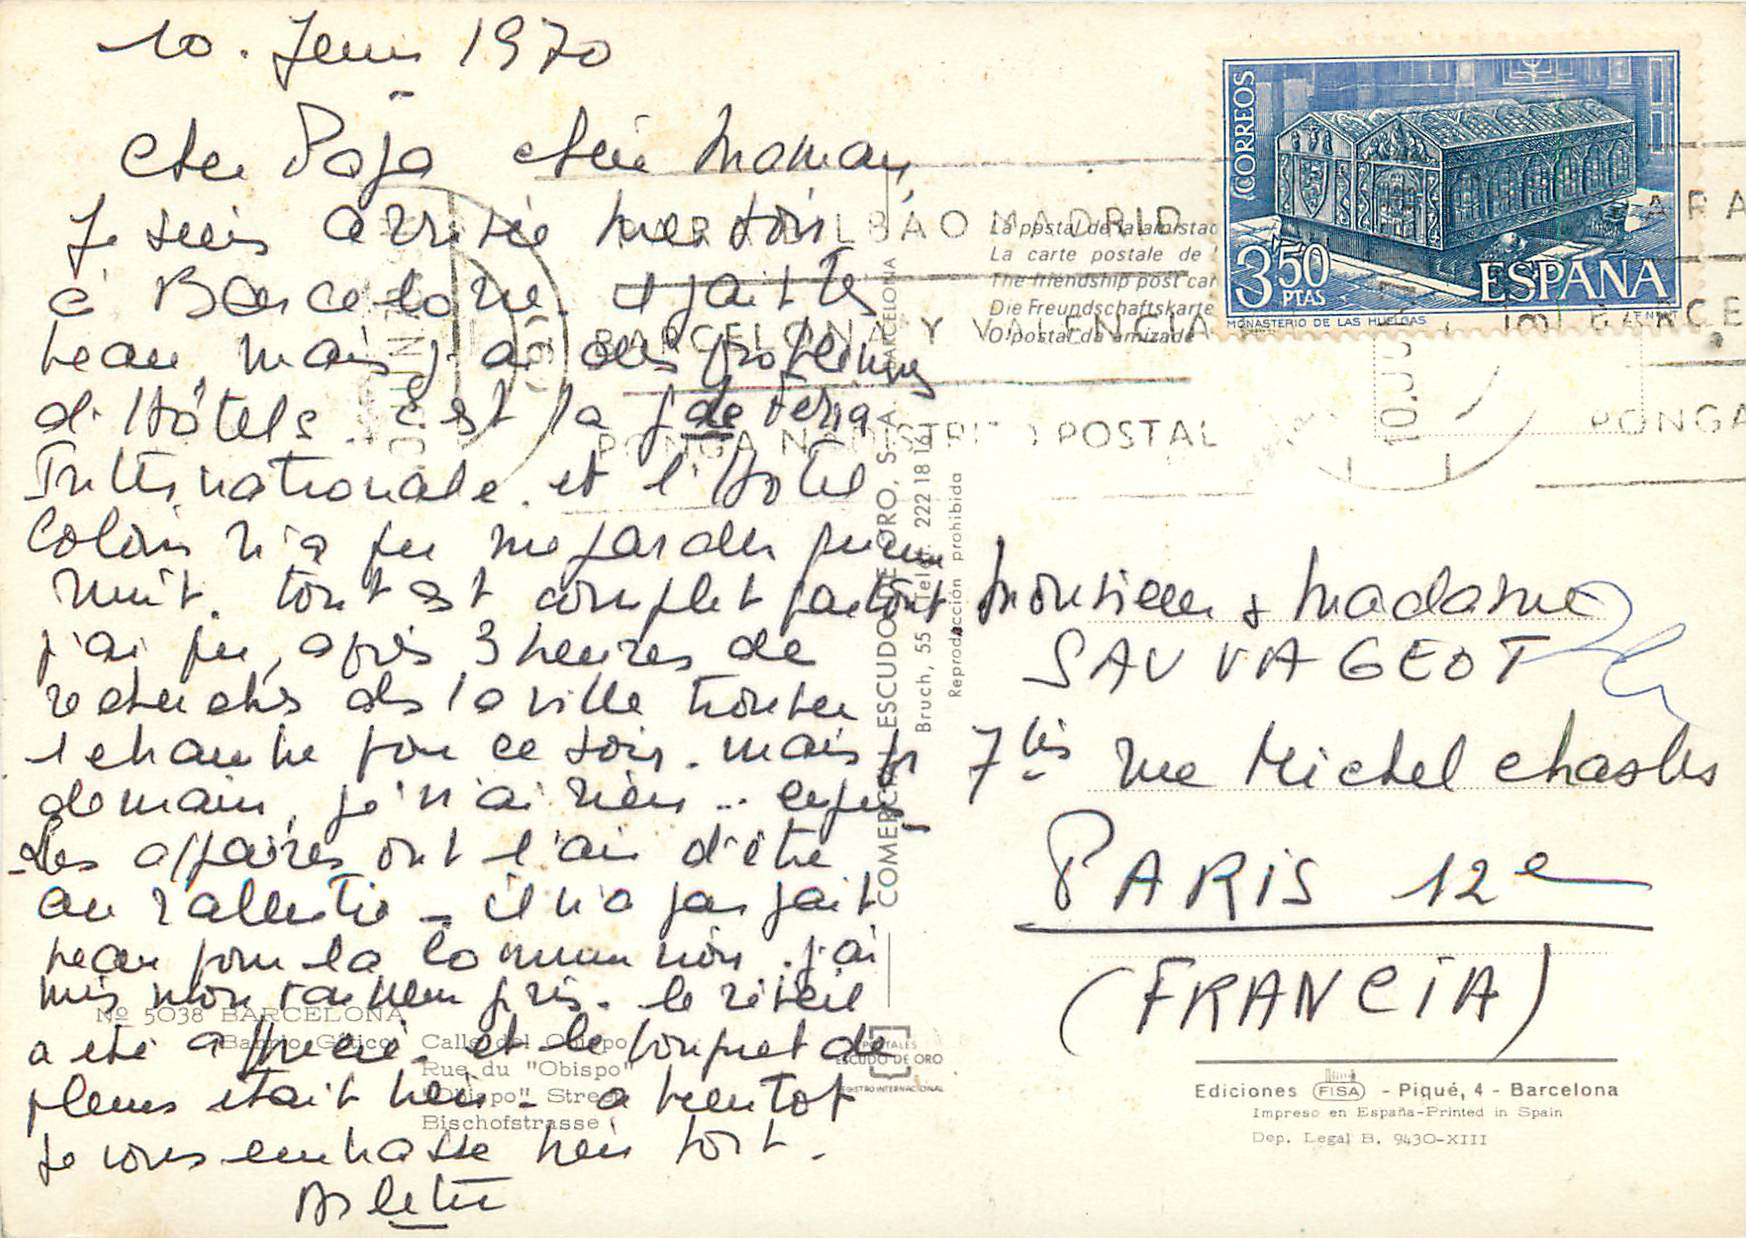 10. Juin 1970
Cher Papa chère Maman,
Je suis arrivée hier soir
à Barcelone. il fait très
beau, mais j'ai des problèmes
d'Hôtels. c'est la f. de Feria
Internationale. et l'Hôtel
Colon n'a pu me garder qu'une
nuit. tout est complet partout
j'ai pu, après 3 heures de
recherches ds la ville trouver
1 chambre pour ce soir. mais pr
demain, je n'ai rien... enfin
-Les affaires ont l'air d'être
au ralenti - il n'a pas fait
beau pour la communion. j'ai
mis mon tailleur gris. le réveil
a été apprécié. et le bouquet de
fleurs était bien - a bientot
Je vous embrasse bien fort.
Arlette
Nº 5038 BARCELONA
Barrio Gótico Calle del Obispo
Rue du "Obispo"
"Obispo" Street
Bischofstrasse
COMERCIAL ESCUDO DE ORO, S. A. BARCELONA
Bruch, 55 Telef. 222 18 06
Reproducción prohibida
POSTALES
ESCUDO DE ORO
REGISTRO INTERNACIONAL
La postal de la amistad
La carte postale de l'
The friendship post car
Die Freundschaftskarte
O postal da amizade
BILBAO MADRID
BARCELONA Y VALENCIA
PONGA N. DISTRITO POSTAL
CORREOS
3'50 PTAS
ESPAÑA
MONASTERIO DE LAS HUELGAS
F.N.M.T
ARA
BARCE
PONGA
10.JU
Monsieur & Madame
SAUVAGEOT
7 bis rue Michel Chasles
PARIS 12e
(FRANCIA)
Ediciones FISA - Piqué, 4 - Barcelona
Impreso en España-Printed in Spain
Dep. Legal B. 9430-XIII